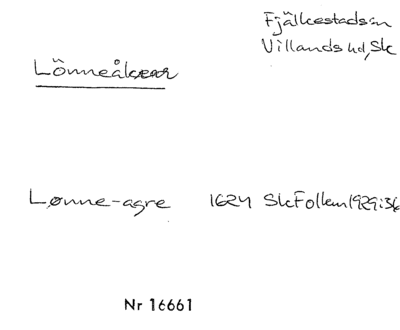 Fjälkestads sn
Villands hd, Sk
Lönneåkrar
Lønne-agre 1624 SkFollem1929:36
Nr 16661